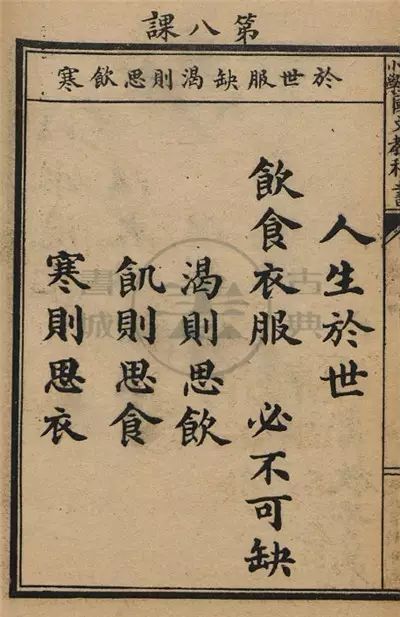 第八課
於世服缺渴則思飲寒
小學國文教科書
人生於世
飲食衣服 必不可缺
渴則思飲
飢則思食
寒則思衣
古典
書城